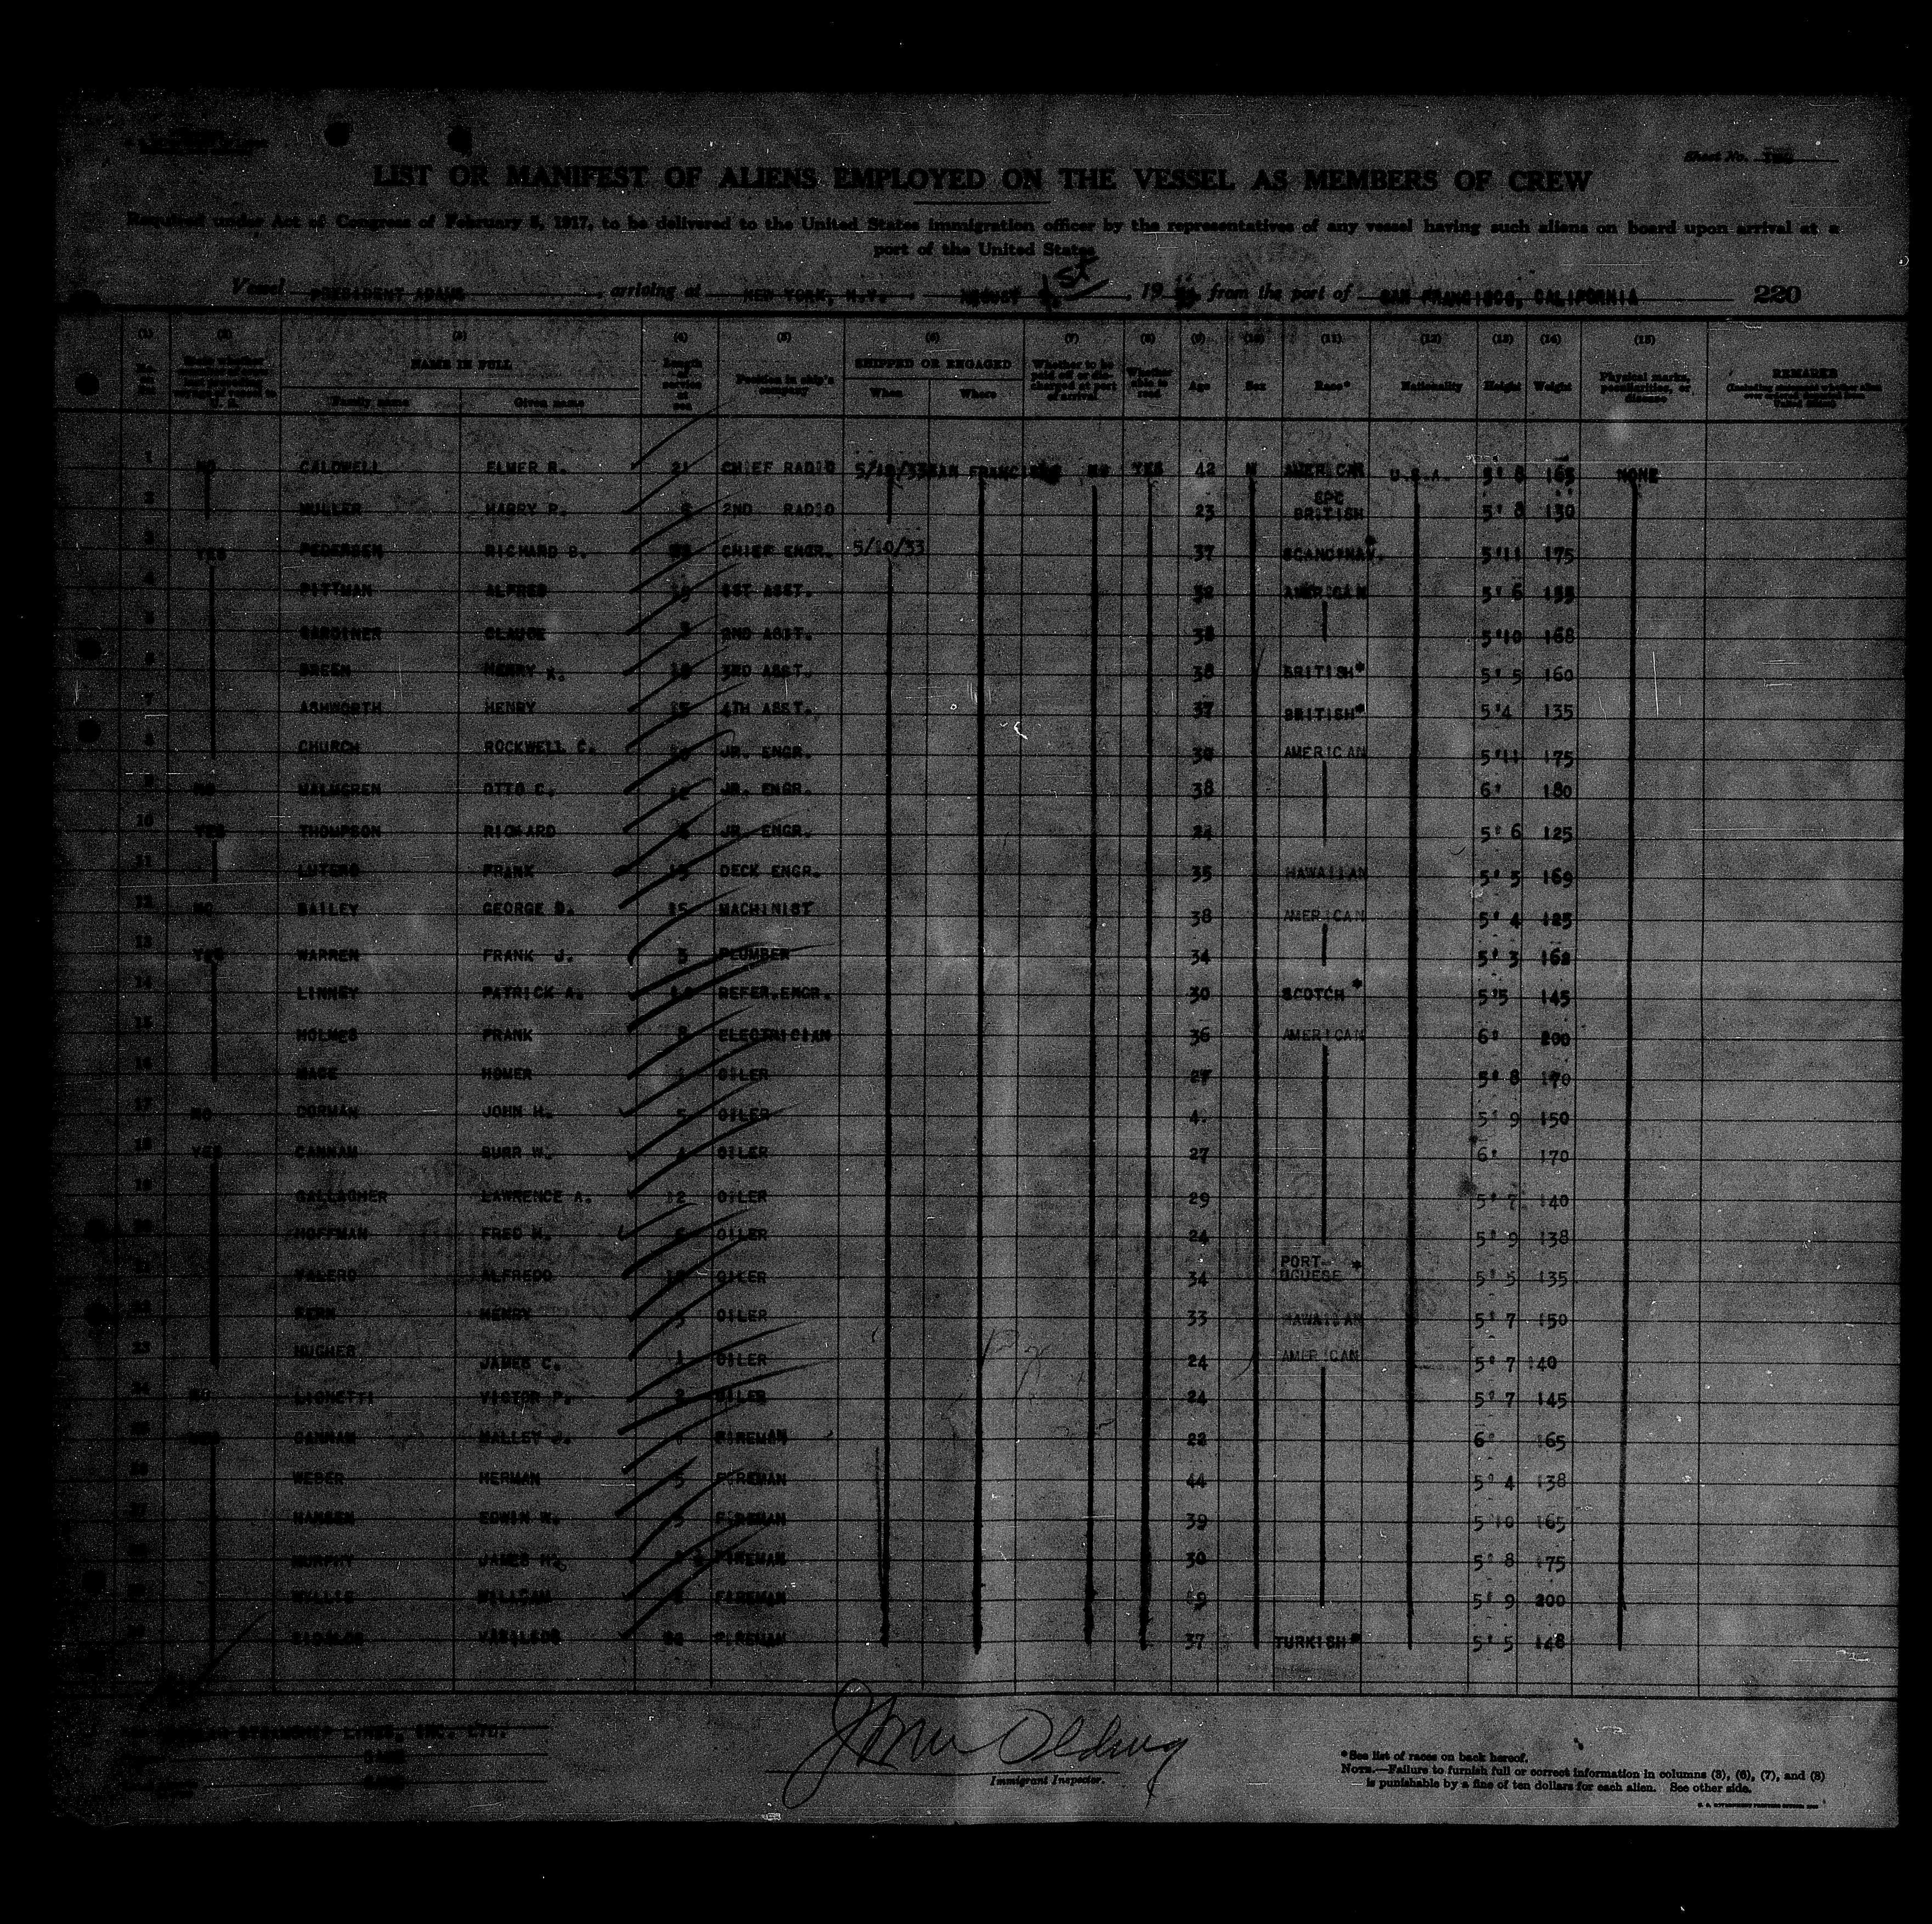 Sheet No.
LIST OR MANIFEST OF ALIENS EMPLOYED ON THE VESSEL AS MEMBERS OF CREW
Required under Act of Congress of February 5, 1917, to be delivered to the United States immigration officer by the representatives of any vessel having such aliens on board upon arrival at a
port of the United States
Vessel PRESIDENT ADAMS, arriving at NEW YORK, N.Y., AUGUST 1st, 19 from the port of SAN FRANCISCO, CALIFORNIA 220
(1) (2) (3) (4) (5) (6) (7) (8) (9) (10) (11) (12) (13) (14) (15)
NAME IN FULL Length of service at sea Position in ship's company SHIPPED OR ENGAGED Whether to be paid off or discharged at port of arrival Whether able to read Age Sex Race* Nationality Height Weight Physical marks, peculiarities, or disease REMARKS
Family name Given name When Where
1 NO CALDWELL ELMER R. 21 CHIEF RADIO 5/10/33 SAN FRANCISCO NO YES 42 M AMERICAN U.S.A. 5' 8 165 NONE
2 MULLER HARRY P. 2ND RADIO 23 BRITISH 5' 8 130
3 YES PEDERSEN RICHARD B. CHIEF ENGR. 5/10/33 37 SCANDINAV.* 5'11 175
4 PITTMAN ALFRED 1ST ASST. 32 AMERICAN 5' 6 155
5 GARDINER CLAUDE 2ND ASST. 38 5'10 168
6 BREEN HENRY 3RD ASST. 38 BRITISH* 5' 5 160
7 ASHWORTH HENRY 15 4TH ASST. 37 BRITISH* 5'4 135
8 CHURCH ROCKWELL C. JR. ENGR. 30 AMERICAN 5'11 175
9 NO MALMGREN OTTO C. 12 JR. ENGR. 38 6' 180
10 YES THOMPSON RICHARD JR. ENGR. 24 5' 6 125
11 LUTERO FRANK 15 DECK ENGR. 35 HAWAIIAN 5' 5 169
12 NO BAILEY GEORGE D. 15 MACHINIST 38 AMERICAN 5' 4 125
13 YES WARREN FRANK J. 3 PLUMBER 34 5' 3 168
14 LINNEY PATRICK A. REFER.ENGR. 30 SCOTCH * 5'5 145
15 HOLMES FRANK 8 ELECTRICIAN 36 AMERICAN 6' 200
16 MACE HOMER OILER 27 5' 8 170
17 NO DORMAN JOHN H. 5 OILER 5' 9 150
18 YES CANHAM BURR W. 4 OILER 27 6' 170
19 GALLAGHER LAWRENCE A. 12 OILER 29 5' 7 140
20 HOFFMAN FRED H. 6 OILER 24 5' 9 138
21 VALERO ALFREDO OILER 34 PORT-
UGUESE * 5' 5 135
22 FERN HENRY 3 OILER 33 HAWAIIAN 5' 7 150
23 HUGHES JAMES C. 1 OILER 24 AMERICAN 5' 7 140
24 NO LIGHETTI VICTOR P. 2 OILER 24 5' 7 145
25 YES CANHAM MALLEY J. 1 FIREMAN 22 6' 165
26 WEBER HERMAN 5 FIREMAN 44 5' 4 138
27 HANSEN EDWIN W. 5 FIREMAN 39 5'10 165
28 MURPHY JAMES H. FIREMAN 30 5' 8 175
29 WILLIAM FIREMAN 5' 9 200
30 FIREMAN 37 TURKISH* 5' 5 148
STEAMSHIP LINES, INC. LTD.
SAME
SAME
Immigrant Inspector.
*See list of races on back hereof.
NOTE.—Failure to furnish full or correct information in columns (3), (6), (7), and (8)
is punishable by a fine of ten dollars for each alien. See other side.